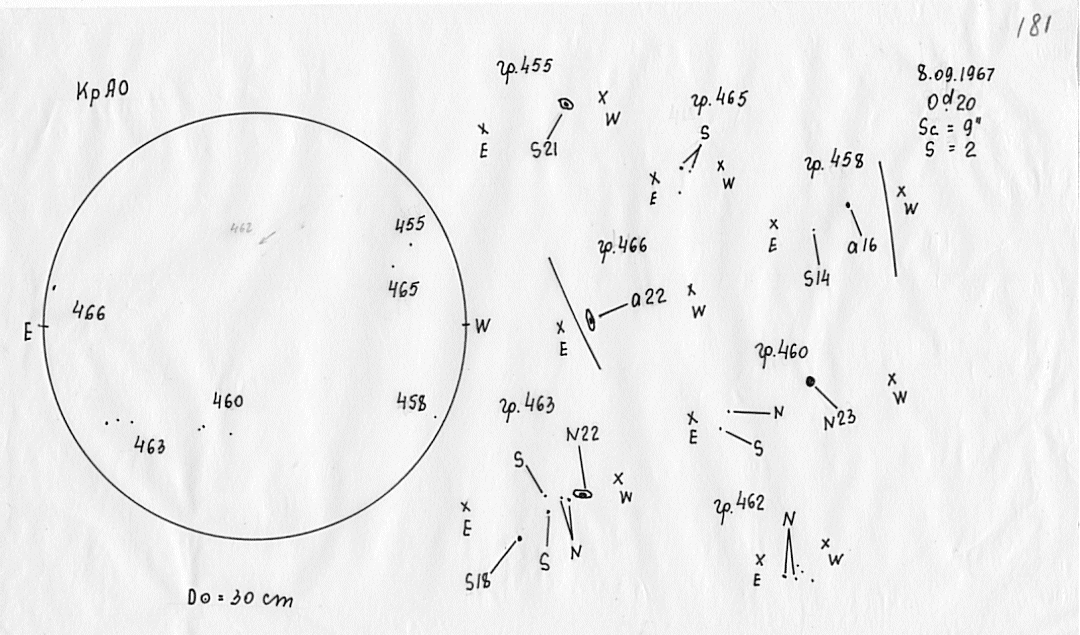 181
КрАО
8.09.1967
0d.20
Sc = 9"
S = 2
гр.455
x
W
x
E
S21
гр.465
S
x
W
x
E
гр.458
x
W
x
E
a16
S14
462
455
465
466
E
W
460
458
463
гр.466
a22
x
W
x
E
гр.460
x
W
N23
N
x
E
S
гр.463
N22
S
x
W
x
E
N
S
S18
гр.462
N
x
W
x
E
D⊙ = 30 cm